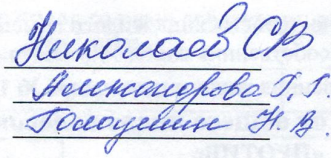 Николаев СВ
Александрова Г. Г.
Голоушин Н. В